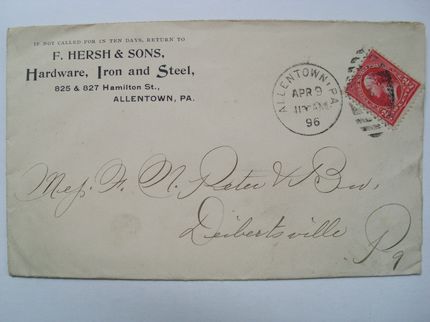 IF NOT CALLED FOR IN TEN DAYS, RETURN TO
F. HERSH & SONS,
Hardware, Iron and Steel,
825 & 827 Hamilton St.,
ALLENTOWN, PA.
ALLENTOWN, PA.
APR 9
AM
96
Mess. F. N. Peter & Bro,
Deibertsville
Pa